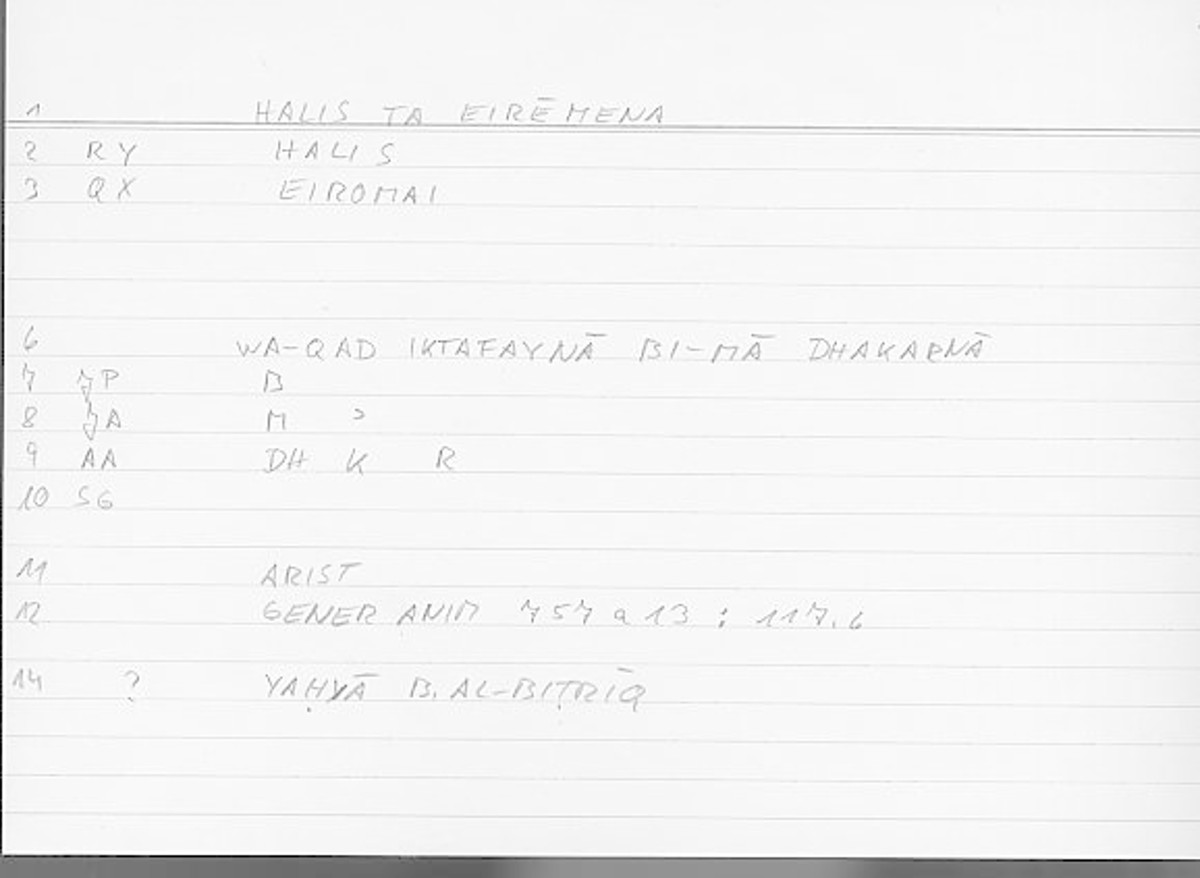 1 HALIS TA EIRĒMENA
2 RY HALIS
3 QX EIROMAI
6 WA-QAD IKTAFAYNĀ BI-MĀ DHAKARNĀ
7 P B
8 A M ʾ
9 AA DH K R
10 SG
11 ARIST
12 GENER ANIM 757 a 13 ; 117.6
14 ? YAḤYĀ B. AL-BIṬRĪQ